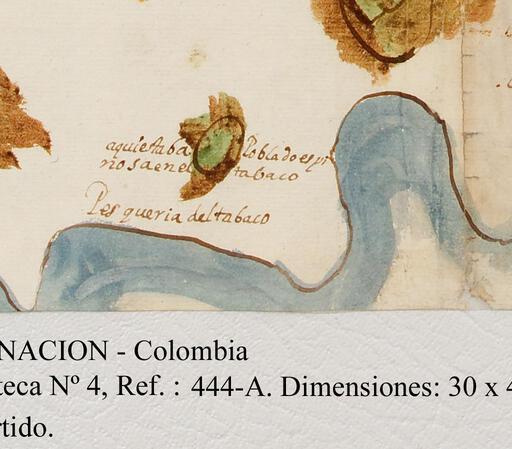 aqui estaba Poblado espi
nosa en el tabaco
Pesqueria del tabaco
NACION - Colombia
teca Nº 4, Ref. : 444-A. Dimensiones: 30 x 4
rtido.